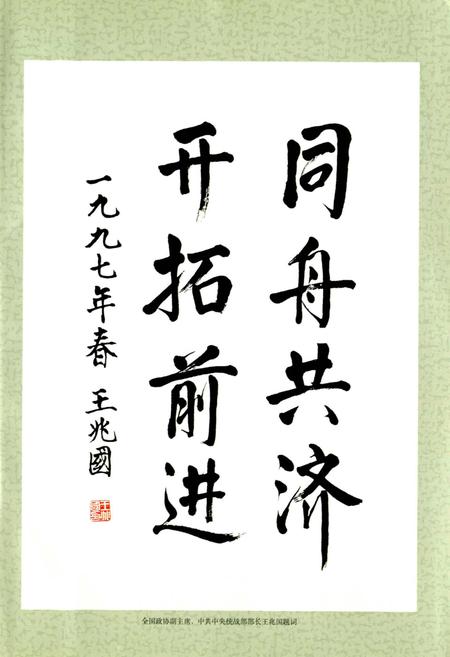 同舟共济
开拓前进
一九九七年春 王兆國
全国政协副主席、中共中央统战部部长王兆国题词